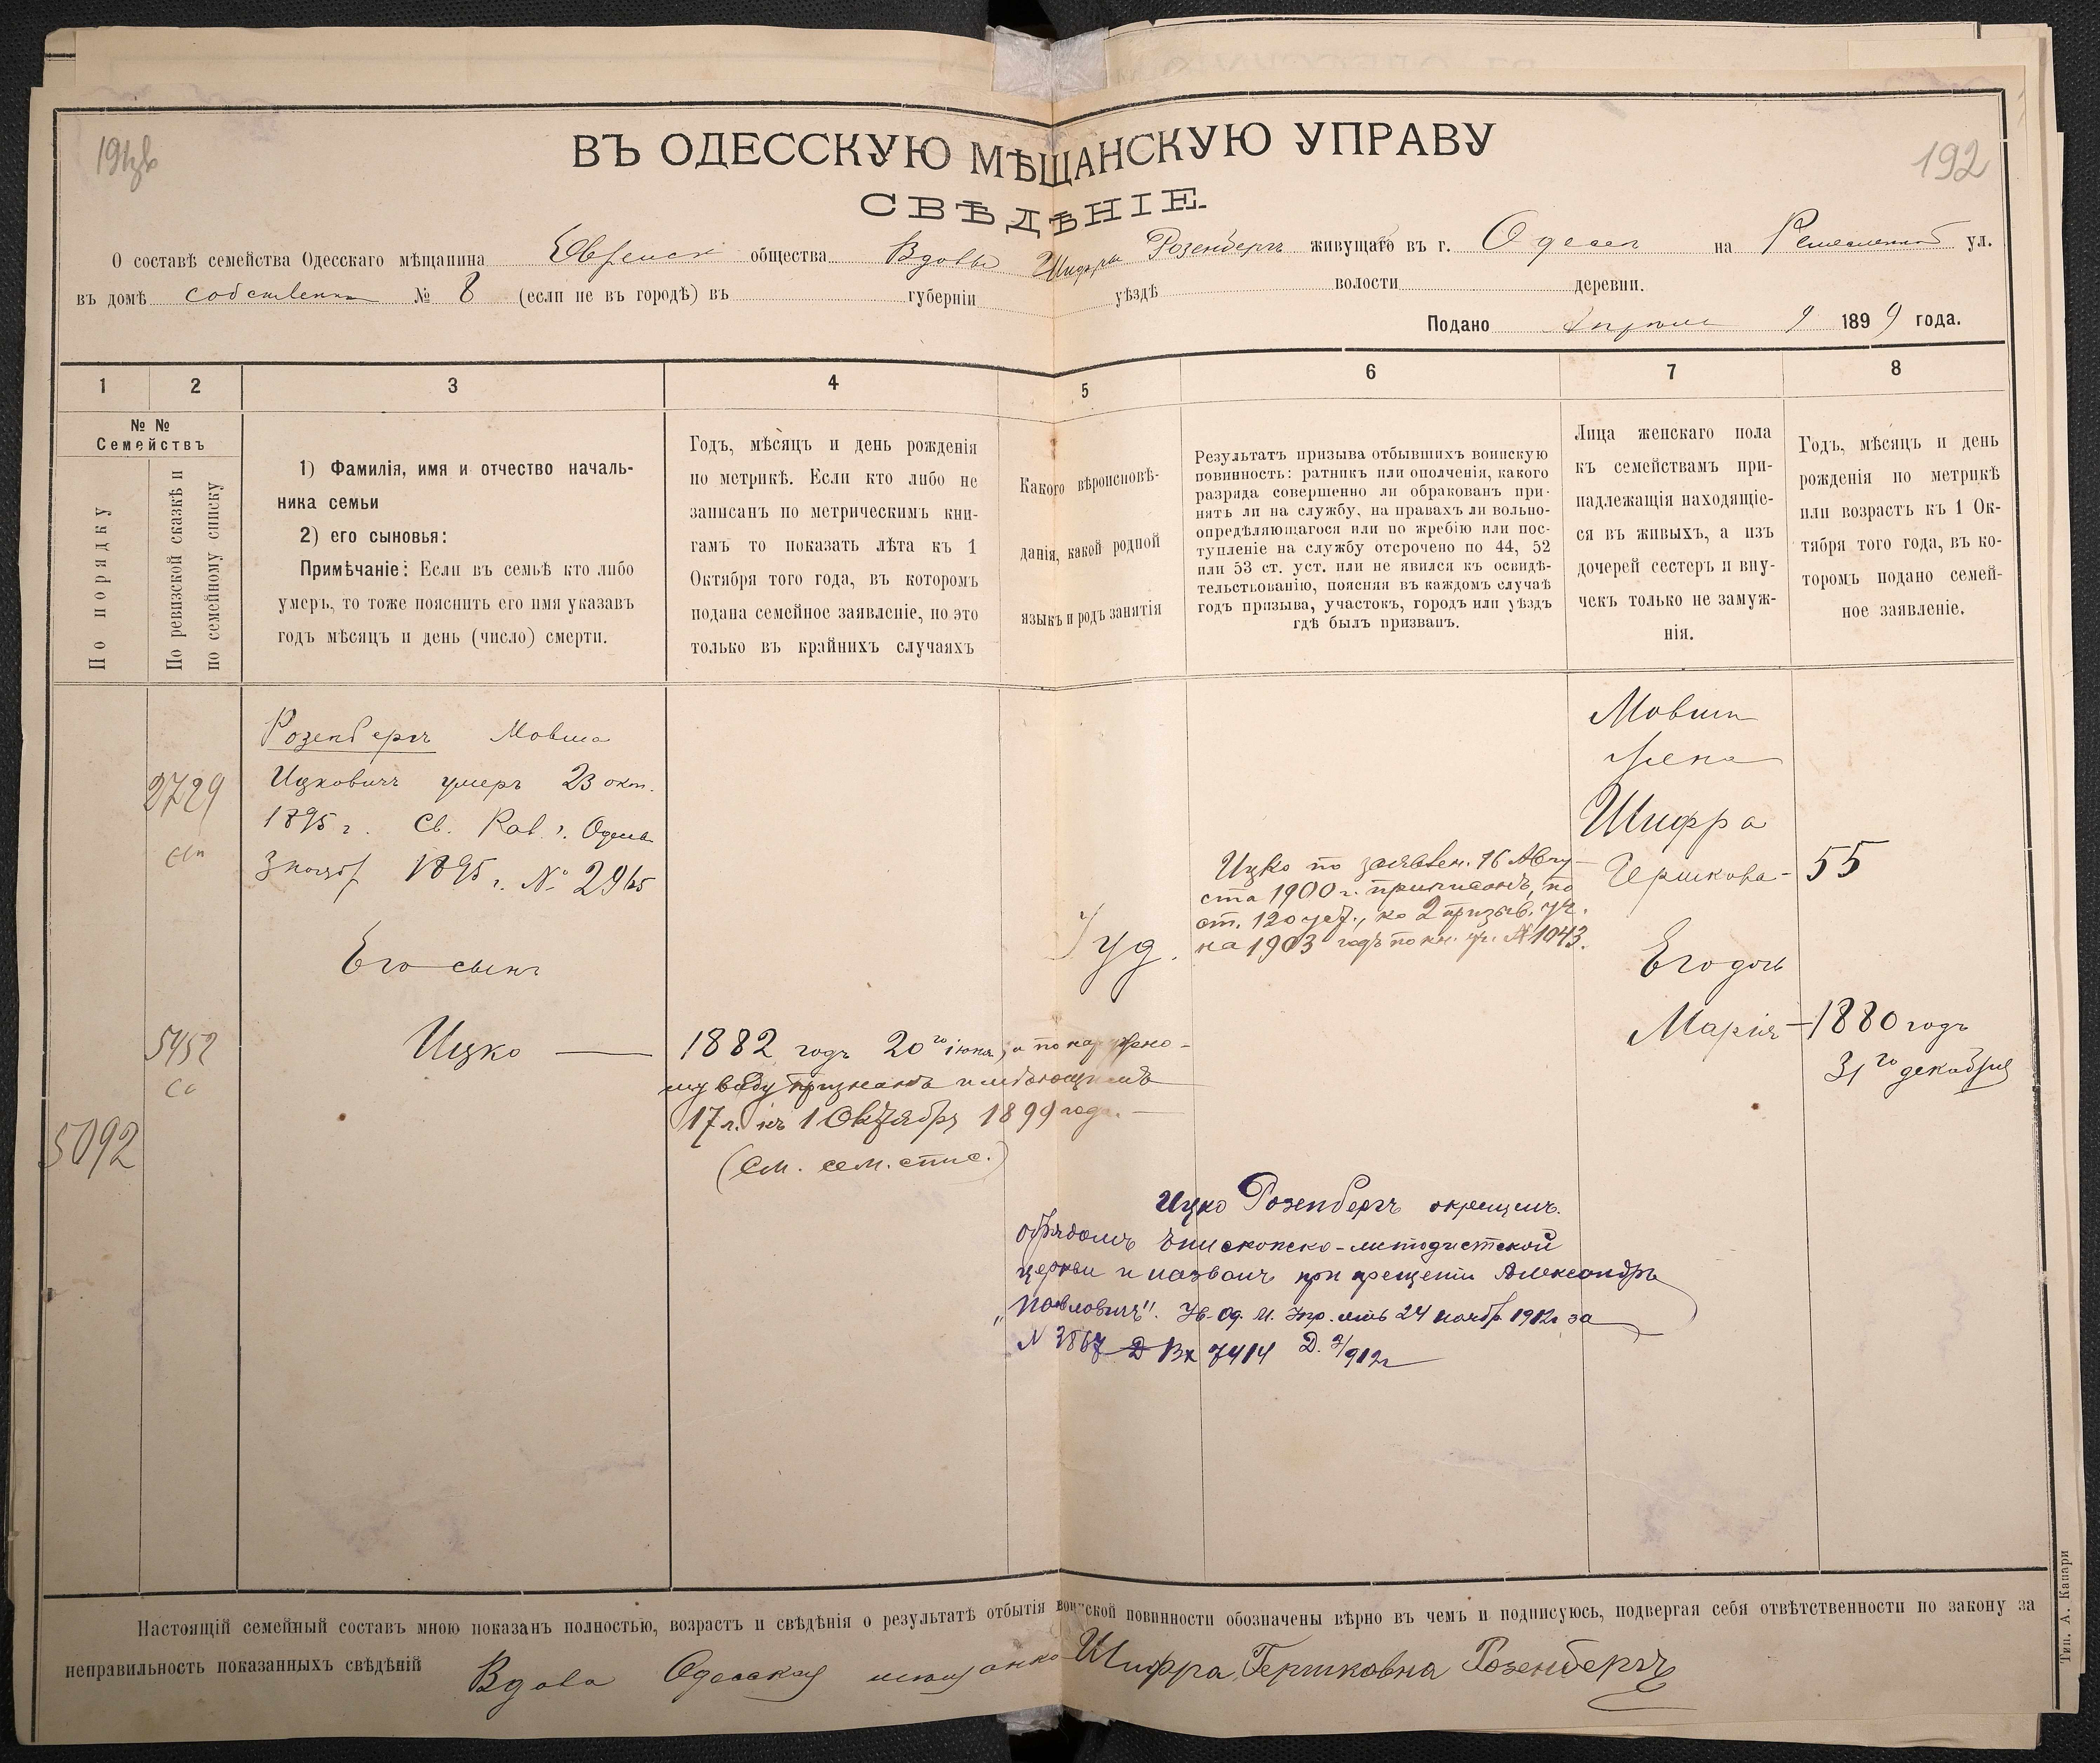 191зв
192
ВЪ ОДЕССКУЮ МѢЩАНСКУЮ УПРАВУ
СВѢДѢНІЕ.
О составѣ семейства Одесскаго мѣщанина Еврейск общества Вдовы Шифры Розенбергъ живущаго въ г. Одесса на Ремесленной ул.
въ домѣ собственн № 8 (если не въ городѣ) въ губерніи уѣздѣ волости деревни.
Подано Апрѣля 9 1899 года.
1 2 3 4 5 6 7 8
№ №
Семействъ
По порядку
По ревизской сказкѣ и
по семейному списку
1) Фамилія, имя и отчество началь-
ника семьи
2) его сыновья:
Примѣчаніе: Если въ семьѣ кто либо
умеръ, то тоже пояснить его имя указавъ
годъ мѣсяцъ и день (число) смерти.
Годъ, мѣсяцъ и день рожденія
по метрикѣ. Если кто либо не
записанъ по метрическимъ кни-
гамъ то показать лѣта къ 1
Октября того года, въ которомъ
подана семейное заявленіе, но это
только въ крайнихъ случаяхъ
Какого вѣроисповѣ-
данія, какой родной
языкъ и родъ занятія
Результатъ призыва отбывшихъ воинскую
повинность: ратникъ или ополченія, какого
разряда совершенно ли обракованъ при-
нятъ ли на службу, на правахъ ли вольно-
опредѣляющагося или по жребію или пос-
тупленіе на службу отсрочено по 44, 52
или 53 ст. уст. или не явился къ освидѣ-
тельствованію, поясняя въ каждомъ случаѣ
годъ призыва, участокъ, городъ или уѣздъ
гдѣ былъ призванъ.
Лица женскаго пола
къ семействамъ при-
надлежащія находящіе-
ся въ живыхъ, а изъ
дочерей сестеръ и вну-
чекъ только не замуж-
нія.
Годъ, мѣсяцъ и день
рожденія по метрикѣ
или возрастъ къ 1 Ок-
тября того года, въ ко-
торомъ подано семей-
ное заявленіе.
2729
сп
Розенбергъ Мовша
Ицковичъ умеръ 23 окт.
1895 г. Св. Рав. г. Одессы
3 нояб 1895 г. № 2965
Его сынъ
5452
сс
5092
Ицко —
1882 годъ 20го іюня, а по наружно-
му виду признанъ имѣющимъ
17 л. къ 1 Октября 1899 года. —
(См. сем. спис.)
Іуд.
Ицко по заявлен. 16 Авгу-
ста 1900 г. приписанъ, по
ст. 120 уст., ко 2 призыв. уч.
на 1903 годъ по кн. уч. № 1043.
Мовши
жена
Шифра
Гершкова - 55
Его дочь
Марія - 1880 годъ
31го декабря
Ицко Розенбергъ окрещенъ.
обрядомъ Епископско-методистской
церкви и названъ при крещеніи Александръ
„Павловичъ". Ув. Од. М. Упр. отъ 24 нояб. 1912г за
№ 3867 Вх 7414 Д. 2/912г
Настоящій семейный составъ мною показанъ полностью, возрастъ и свѣдѣнія о результатѣ отбытія воинской повинности обозначены вѣрно въ чемъ и подписуюсь, подвергая себя отвѣтственности по закону за
неправильность показанныхъ свѣдѣній Вдова Одесская мѣщанка Шифра Гершковна Розенбергъ
Тип. А. Капари